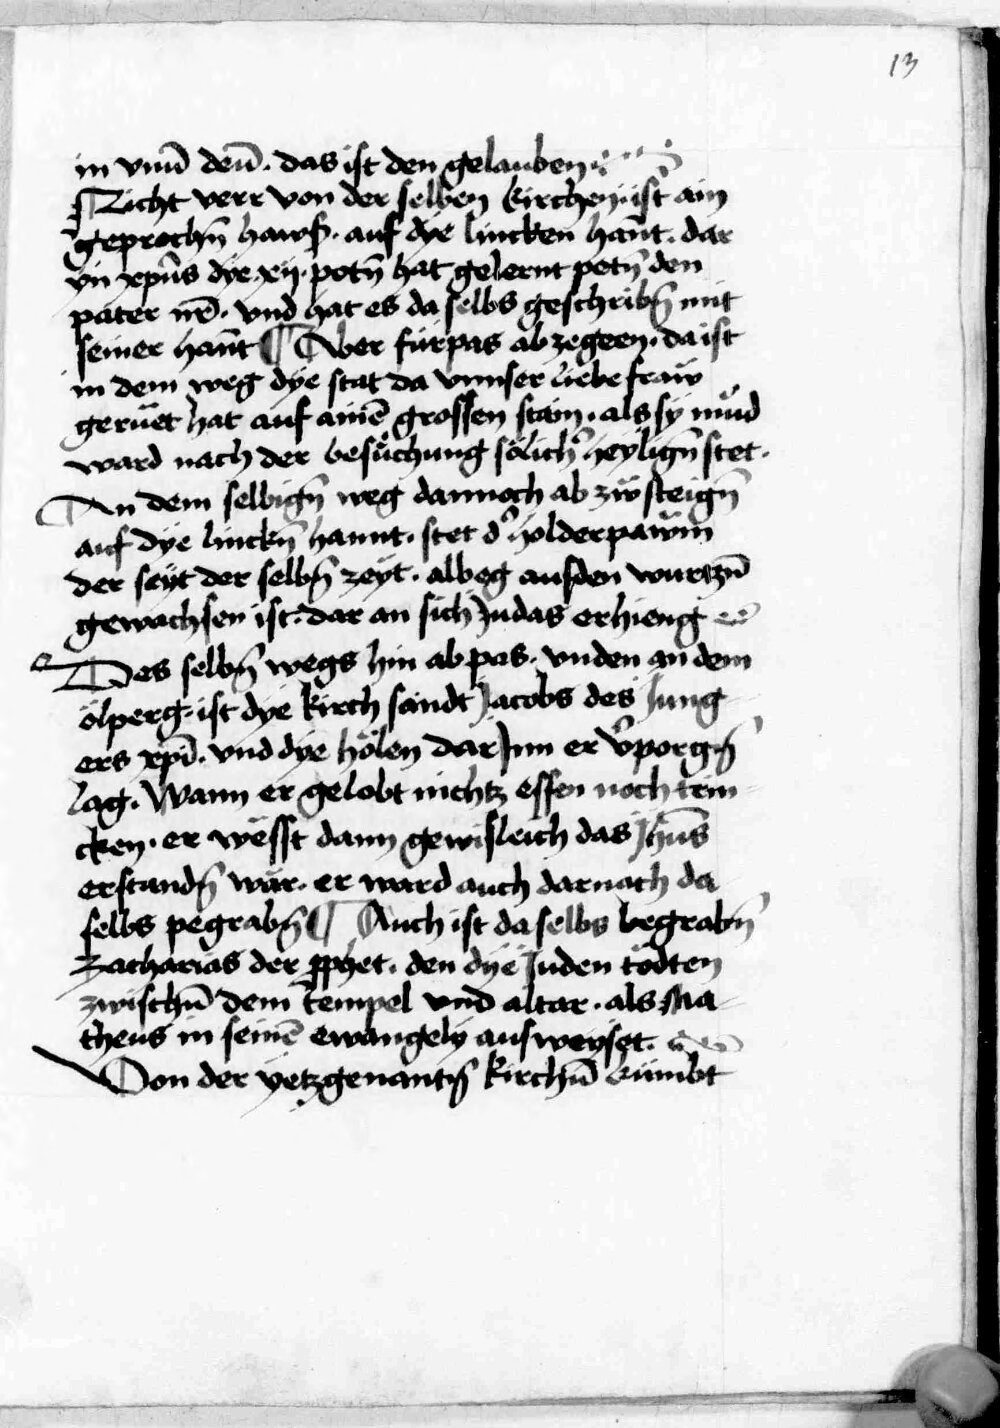 13
in vnū deū · das ist den gelauben
Nicht verr von der selben kirchen · ist ain
geprochn̄ hawß · auf dye lincken han̄t · dar
yn xp̄us dye xij · potn̄ hat gelernt petn̄ den
pater nr̄ · vnd hat es da selbs geschribn̄ mit
seiner han̄t ¶ Aber fürpas ab zegeen · da ist
in dem weg dye stat da vnnser liebe fraw
gerüet hat auf ainē grossen stain · als sy müd
ward nach der besüchung sölicher̄ heylign̄ stet ·
An dem selbign̄ weg dannoch ab zw steign̄
auf dye linckn̄ hannt · stet d̄ holderpawm
der seyt der selbn̄ zeyt · albeg aus den wurtzn̄
gewachsen ist · dar an sich Judas erhieng
Des selbn̄ wegs hin ab pas · vnden an dem
ölperg · ist dye kirch sandt Jacobs des Jung
ers xp̄i · vnd dye hölen dar Jnn er v̄porgn̄
lag · Wann er gelobt nichtz essen noch trin-
cken · er wesst dann gewisleich das Jhūs
erstandn̄ wär · er ward auch darnach da
selbs pegrabn̄ ¶ Auch ist da selbs begrabn̄
Zacharias der p̄phet · den dye Juden tödten
zwischn̄ dem tempel vnd altar · als Ma-
theus in seinē ewangely ausweyset ·
Von der yetzgenantn̄ kirchn̄ kümbt